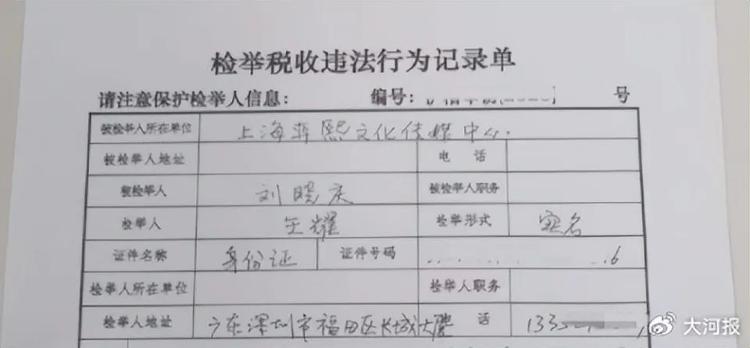 检举税收违法行为记录单
请注意保护检举人信息： 编号： 号
被检举人所在单位 上海 熙文化传媒中心.
被检举人地址 电 话
被检举人 刘晓庆 被检举人职务
检举人 王耀 检举形式 实名
证件名称 身份证 证件号码 6
检举人所在单位 检举人职务
检举人地址 广东深圳市福田区长城大厦 话 133
大河报